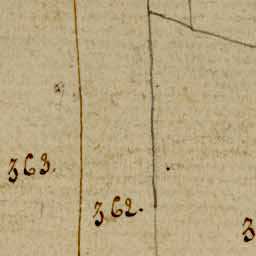 363.
362.
3